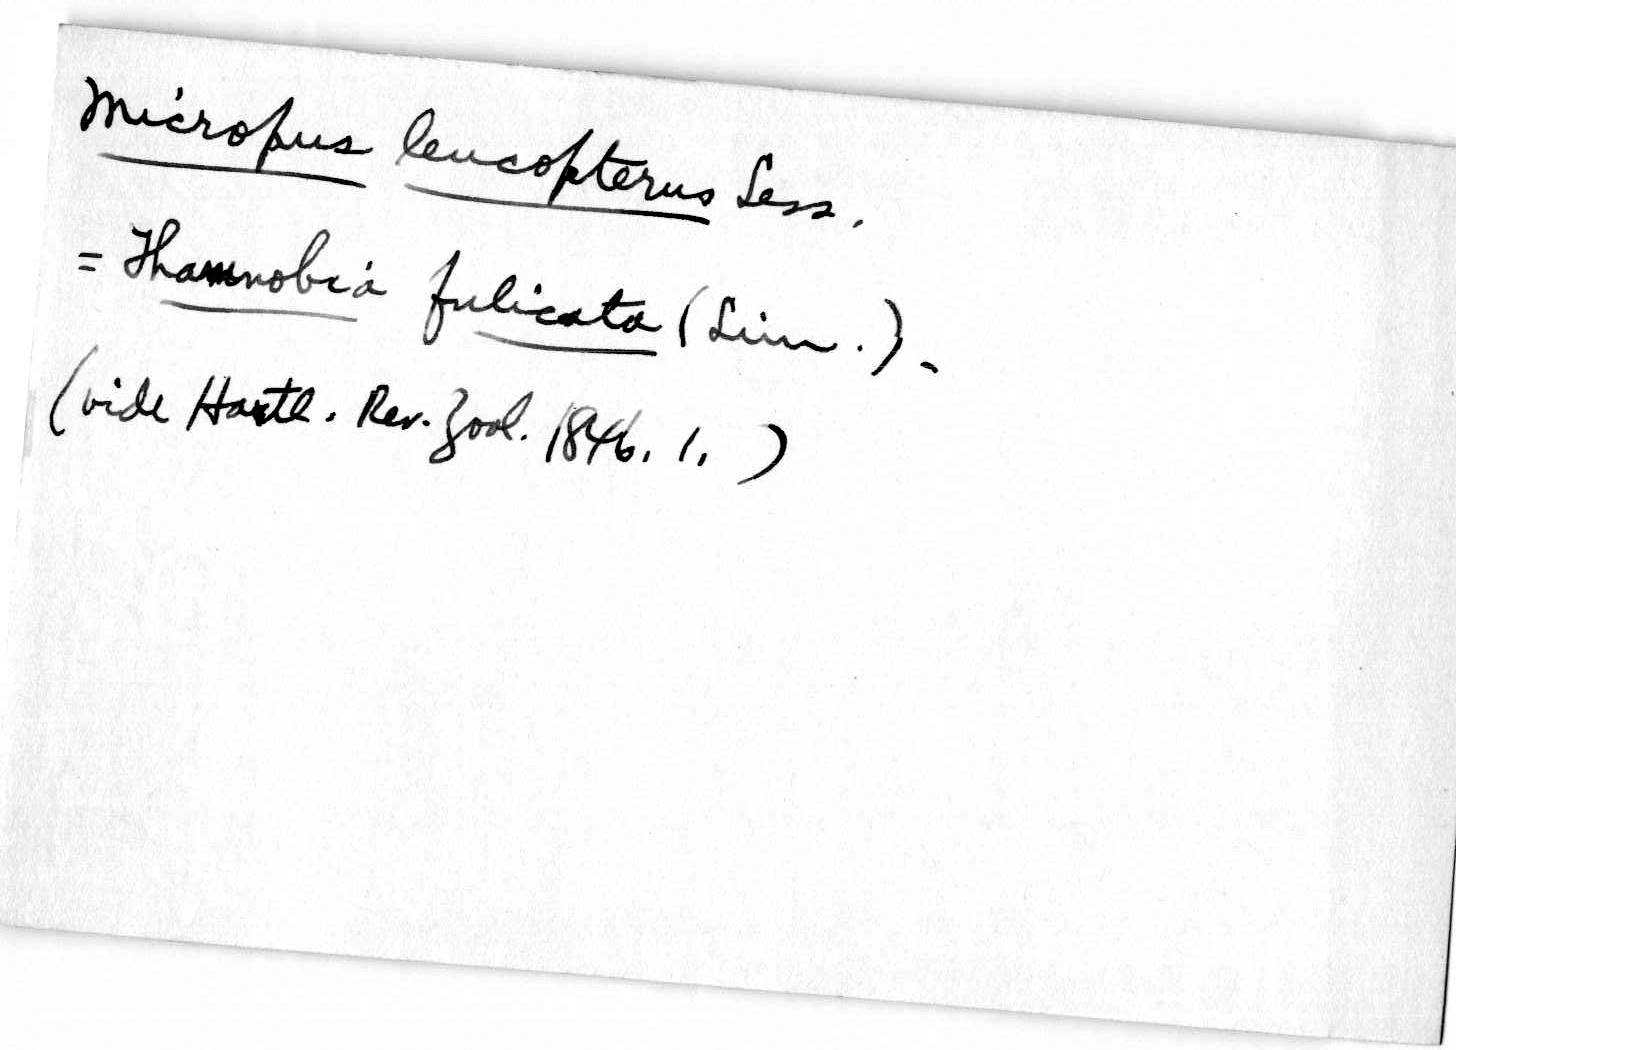 Micropus leucopterus Less.
= Thamnobia fulicata (Linn.).
(vide Hartl. Rev. Zool. 1846. 1.)